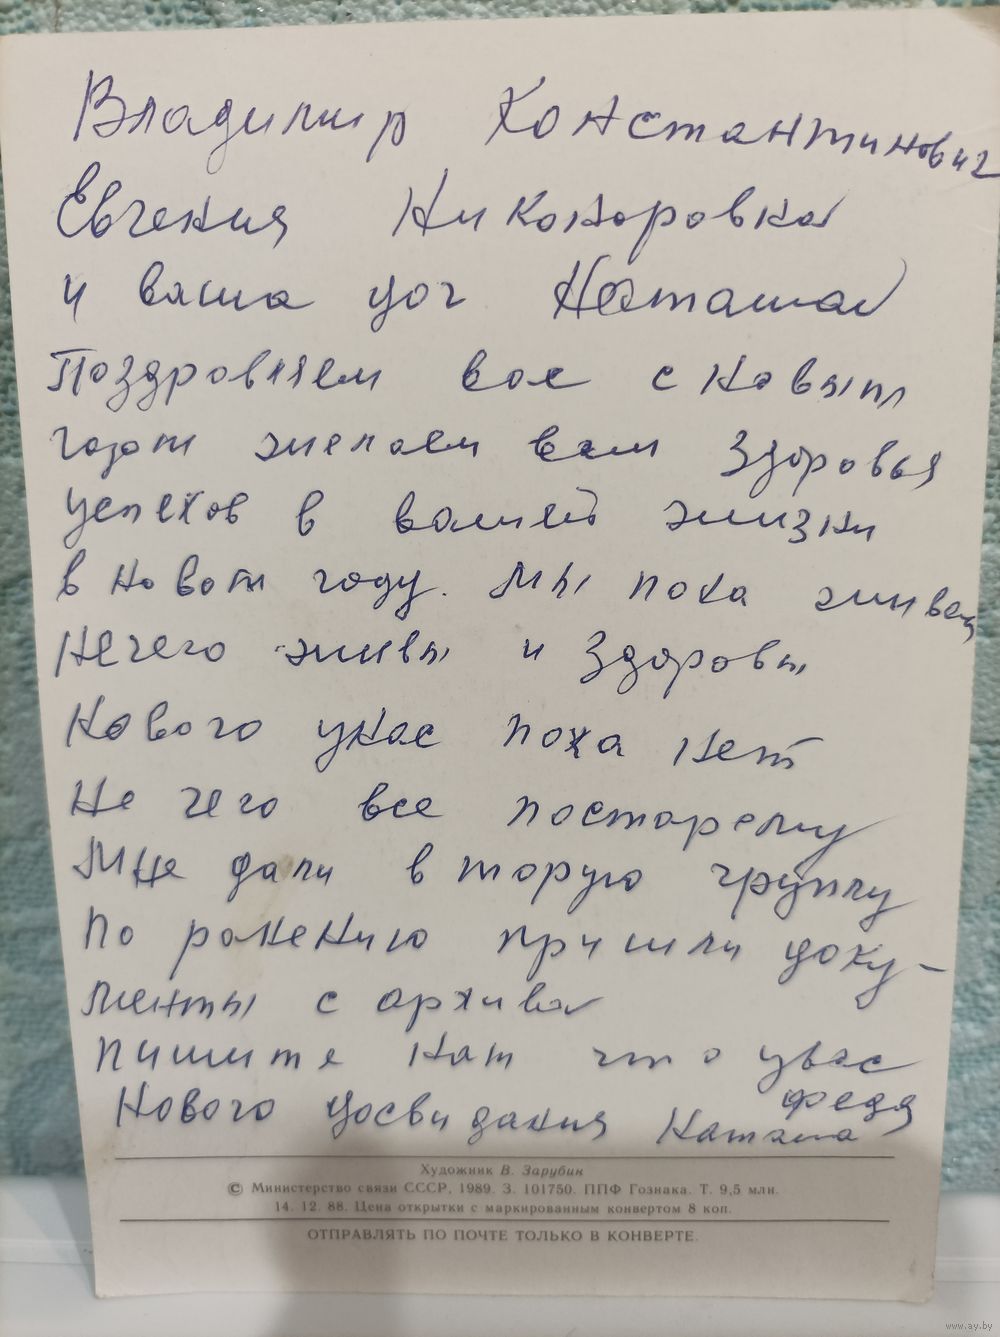 Владимир Константинович
Евгения Никоноровна
и ваша доч Наташа
Поздровляем вас с новым
годом желаем вам здоровья
успехов в вашей жизни
в новом году. Мы пока живем
Нечего живы и здоровы
Нового унас пока нет
Не чего все постарему
Мне дали вторую группу
По ронению пришли доку-
менты с архива
пишите нам что увас
Нового досвидания Федя
Наташа
Художник В. Зарубин
© Министерство связи СССР, 1989. З. 101750. ППФ Гознака. Т. 9,5 млн.
14. 12. 88. Цена открытки с маркированным конвертом 8 коп.
ОТПРАВЛЯТЬ ПО ПОЧТЕ ТОЛЬКО В КОНВЕРТЕ.
www.ay.by